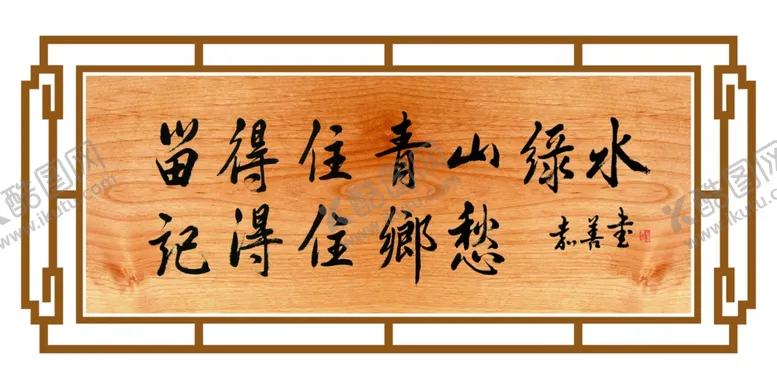 留得住青山绿水
记得住鄉愁
嘉善书
酷图网
www.ikutu.com